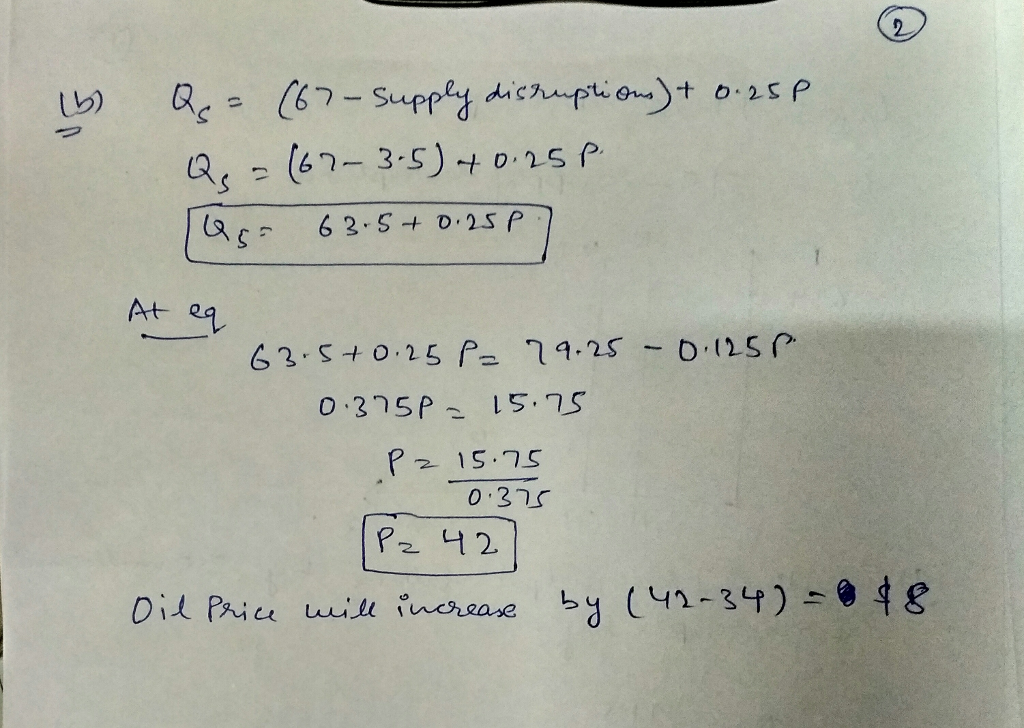 2
(b) Qs = (67 - Supply disruptions) + 0.25P
Qs = (67 - 3.5) + 0.25 P.
Qs = 63.5 + 0.25P
At eq
63.5 + 0.25 P = 79.25 - 0.125P
0.375P = 15.75
P = 15.75
0.375
P = 42
Oil Price will increase by (42-34) = $8